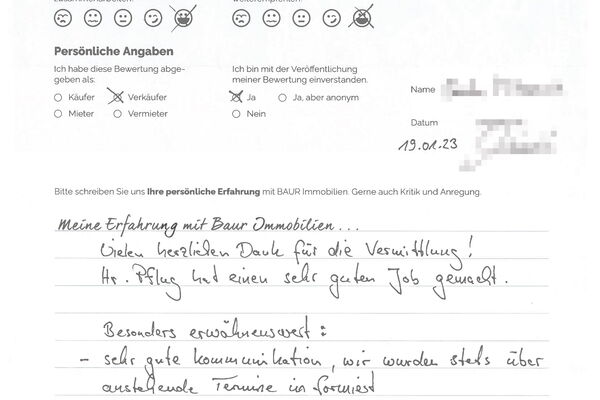 Persönliche Angaben
Ich habe diese Bewertung abge-
geben als:
Käufer
Verkäufer
Mieter
Vermieter
Ich bin mit der Veröffentlichung
meiner Bewertung einverstanden.
Ja
Ja, aber anonym
Nein
Name
Datum
19.01.23
Bitte schreiben Sie uns Ihre persönliche Erfahrung mit BAUR Immobilien. Gerne auch Kritik und Anregung.
Meine Erfahrung mit Baur Immobilien...
Vielen herzlichen Dank für die Vermittlung!
Hr. Pflug hat einen sehr guten Job gemacht.
Besonders erwähnenswert:
- sehr gute Kommunikation, wir wurden stets über
anstehende Termine informiert